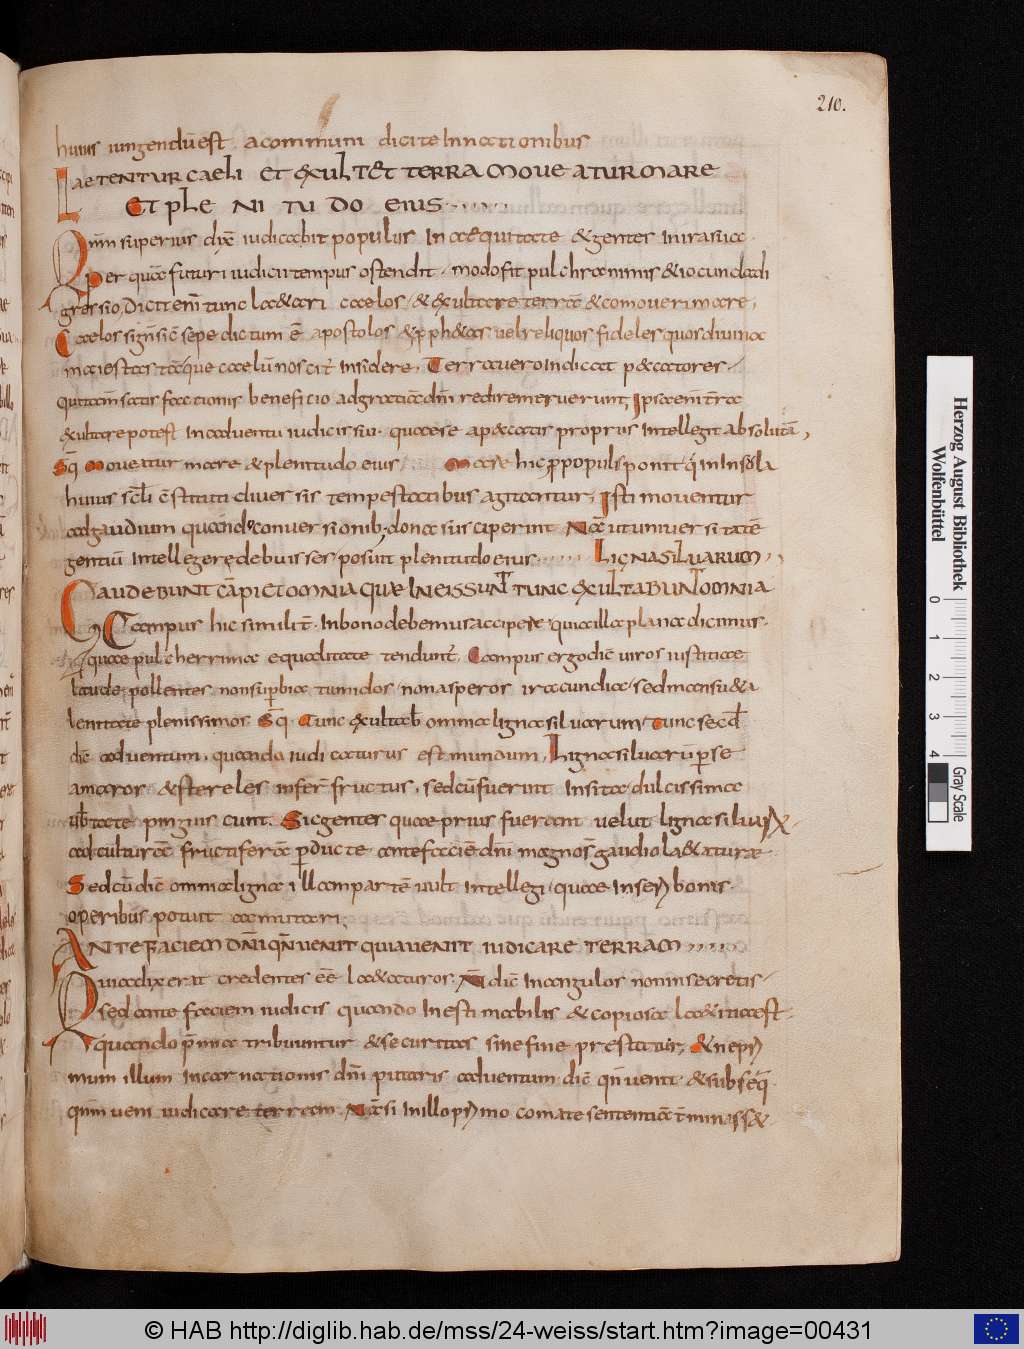 210.
huius iungendū est a communi dicite In nationibus
Laetentur caeli et exultet terra moveatur mare
Et ple ni tu do eius
Qm̄ superius dix̄ iudicabit populus In aequitate & gentes In ira sua
Per quā futuri iudicii tempus ostendit modo fit pulchra nimis & iocunda di
gressio, Dicit enī tunc laetari caelos & exultare terrā & commoveri mare,
Caelos sepe dictum ē apostolos uel reliquos fideles quos diuina
maiestas caelū noscit Insidere, Terra uero Indicat peccatores
qui tam satis factionis beneficio ad gratiā dn̄i redire meruerunt, Ipsa enī
exultare potest In aduentu iudicis sui quae se a peccatis propriis Intellegit absolutā,
Moueatur mare & plenitudo eius Mare hic pro populis ponit In Insula
huius constituti diuersis tempestatibus agitantur, Isti mouentur
ad gaudium quando conuersionis dona susciperint Nā ut uniuersitatē
gentiū Intellegere debuisses posuit plenitudo eius Ligna siluarum
Gaudebunt cāpi et omnia quae In eis sunt tunc exultabunt omnia
Campus hic similit̄ In bono debemus accipere quia illa plana dicimus
quae pulcherrima equalitate tendunt, Campus ergo dic̄ uiros iustitiae
laude pollentes non sup̄bia tumidos non asperos iracundia sed mansueti
lenitate plenissimos Sq̄ Tunc exultab̄ omnia ligna siluarum Tunc secd̄
dic̄ aduentum, quando iudicaturus est mundum, Ligna siluarū per se
amaror & stereles infer̄ fructus, sed cū fuerint Insita dulcissima
ubertate pinguiscunt. Sic gentes quae prius fuerant uelut ligna siluarum
ad culturā fructiferā perducte ante faciē dn̄i magno gaudio laetature
Sed cū dic̄ omnia ligna illam partē uult Intellegi quae In se bonis
operibus potuit commutari,
Ante faciem dn̄i qn̄ uenit quia uenit iudicare terram
Quia dixerat credentes eē laetaturos. Nc̄ dic̄ In angulos non in secretis
sed ante faciem iudicis quando In estimabilis & copiosa laetitia est
quando praemia tribuuntur & securitas sine fine prestatur, & ne pri
mum illum Incarnationis dn̄i putaris aduentum dic̄ qn̄ uenit & subseq̄
qm̄ ueni iudicare terram Nā si In illo primo comate sententiā t̄minasset
Herzog August Bibliothek
Wolfenbüttel
0 1 2 3 4 Gray Scale
© HAB http://diglib.hab.de/mss/24-weiss/start.htm?image=00431